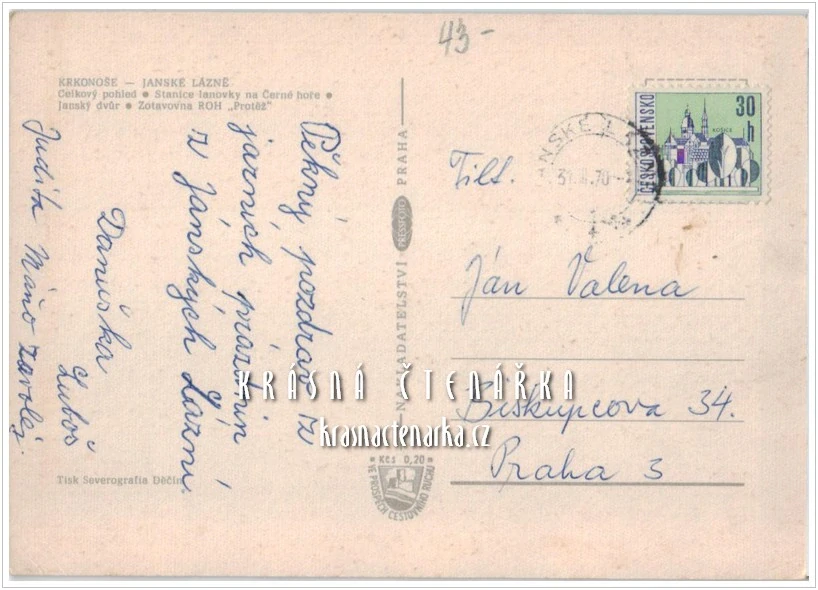 43-
KRKONOŠE — JANSKÉ LÁZNĚ
Celkový pohled ● Stanice lanovky na Černé hoře ●
Janský dvůr ● Zotavovna ROH „Protěž"
Pěkný pozdrav ze
jarních prázdnin
z Jánských Lázní
Danuška
Luboš
Judita Máňo zavolej.
Tisk Severografia Děčín
NAKLADATELSTVÍ PRESSFOTO PRAHA
Kčs 0,20
VE PROSPĚCH CESTOVNÍHO RUCHU
ČESKOSLOVENSKO
30
h
KOŠICE
NSKÉ L
70
Tilt.
Ján Valena
Biskupcova 34.
Praha 3
KRÁSNÁ ČTENÁŘKA
krasnactenarka.cz